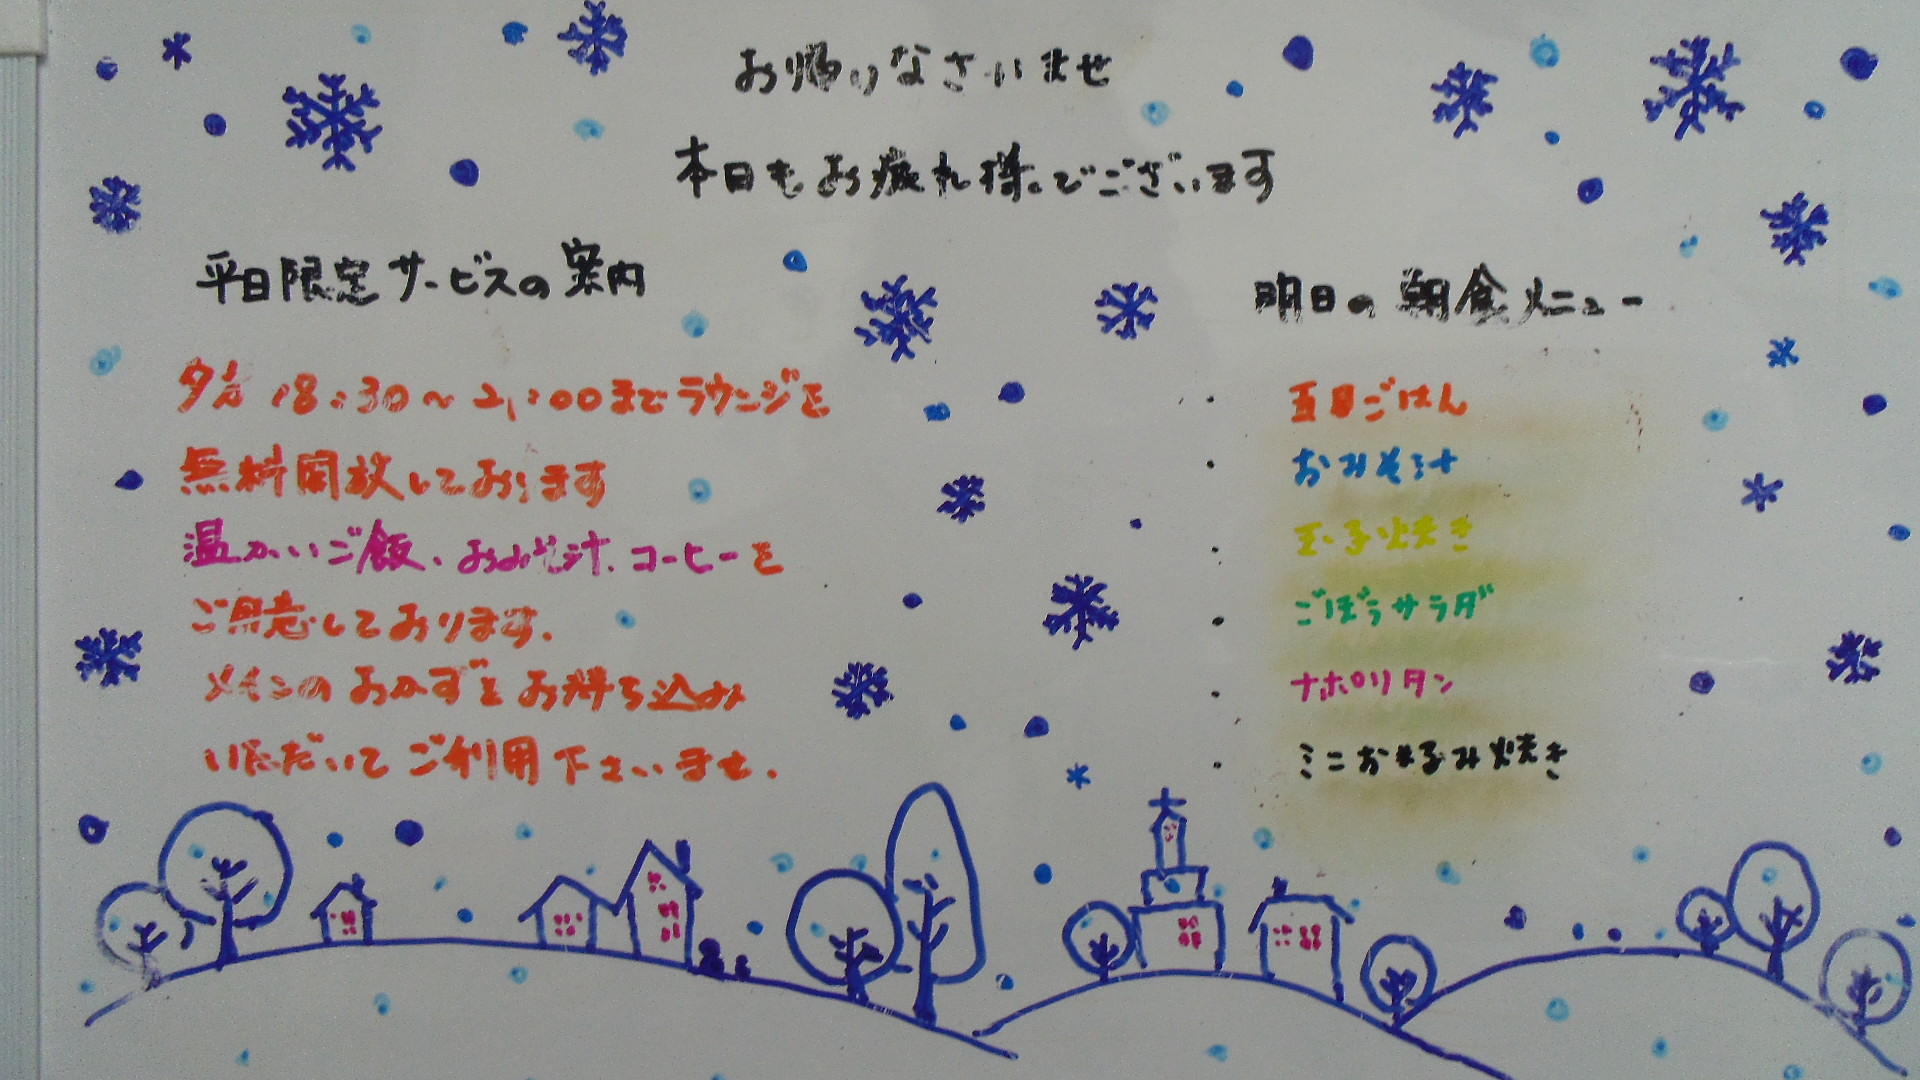 お帰りなさいませ
本日もお疲れ様でございます
平日限定サービスの案内
夕方 18:30～21:00までラウンジを
無料開放しております
温かいご飯、おみそ汁、コーヒーを
ご用意しております。
メインのおかずをお持ち込み
いただいてご利用下さいませ.
明日の朝食メニュー
・ 五目ごはん
・ おみそ汁
・ 玉子焼き
・ ごぼうサラダ
・ ナポリタン
・ ミニお好み焼き